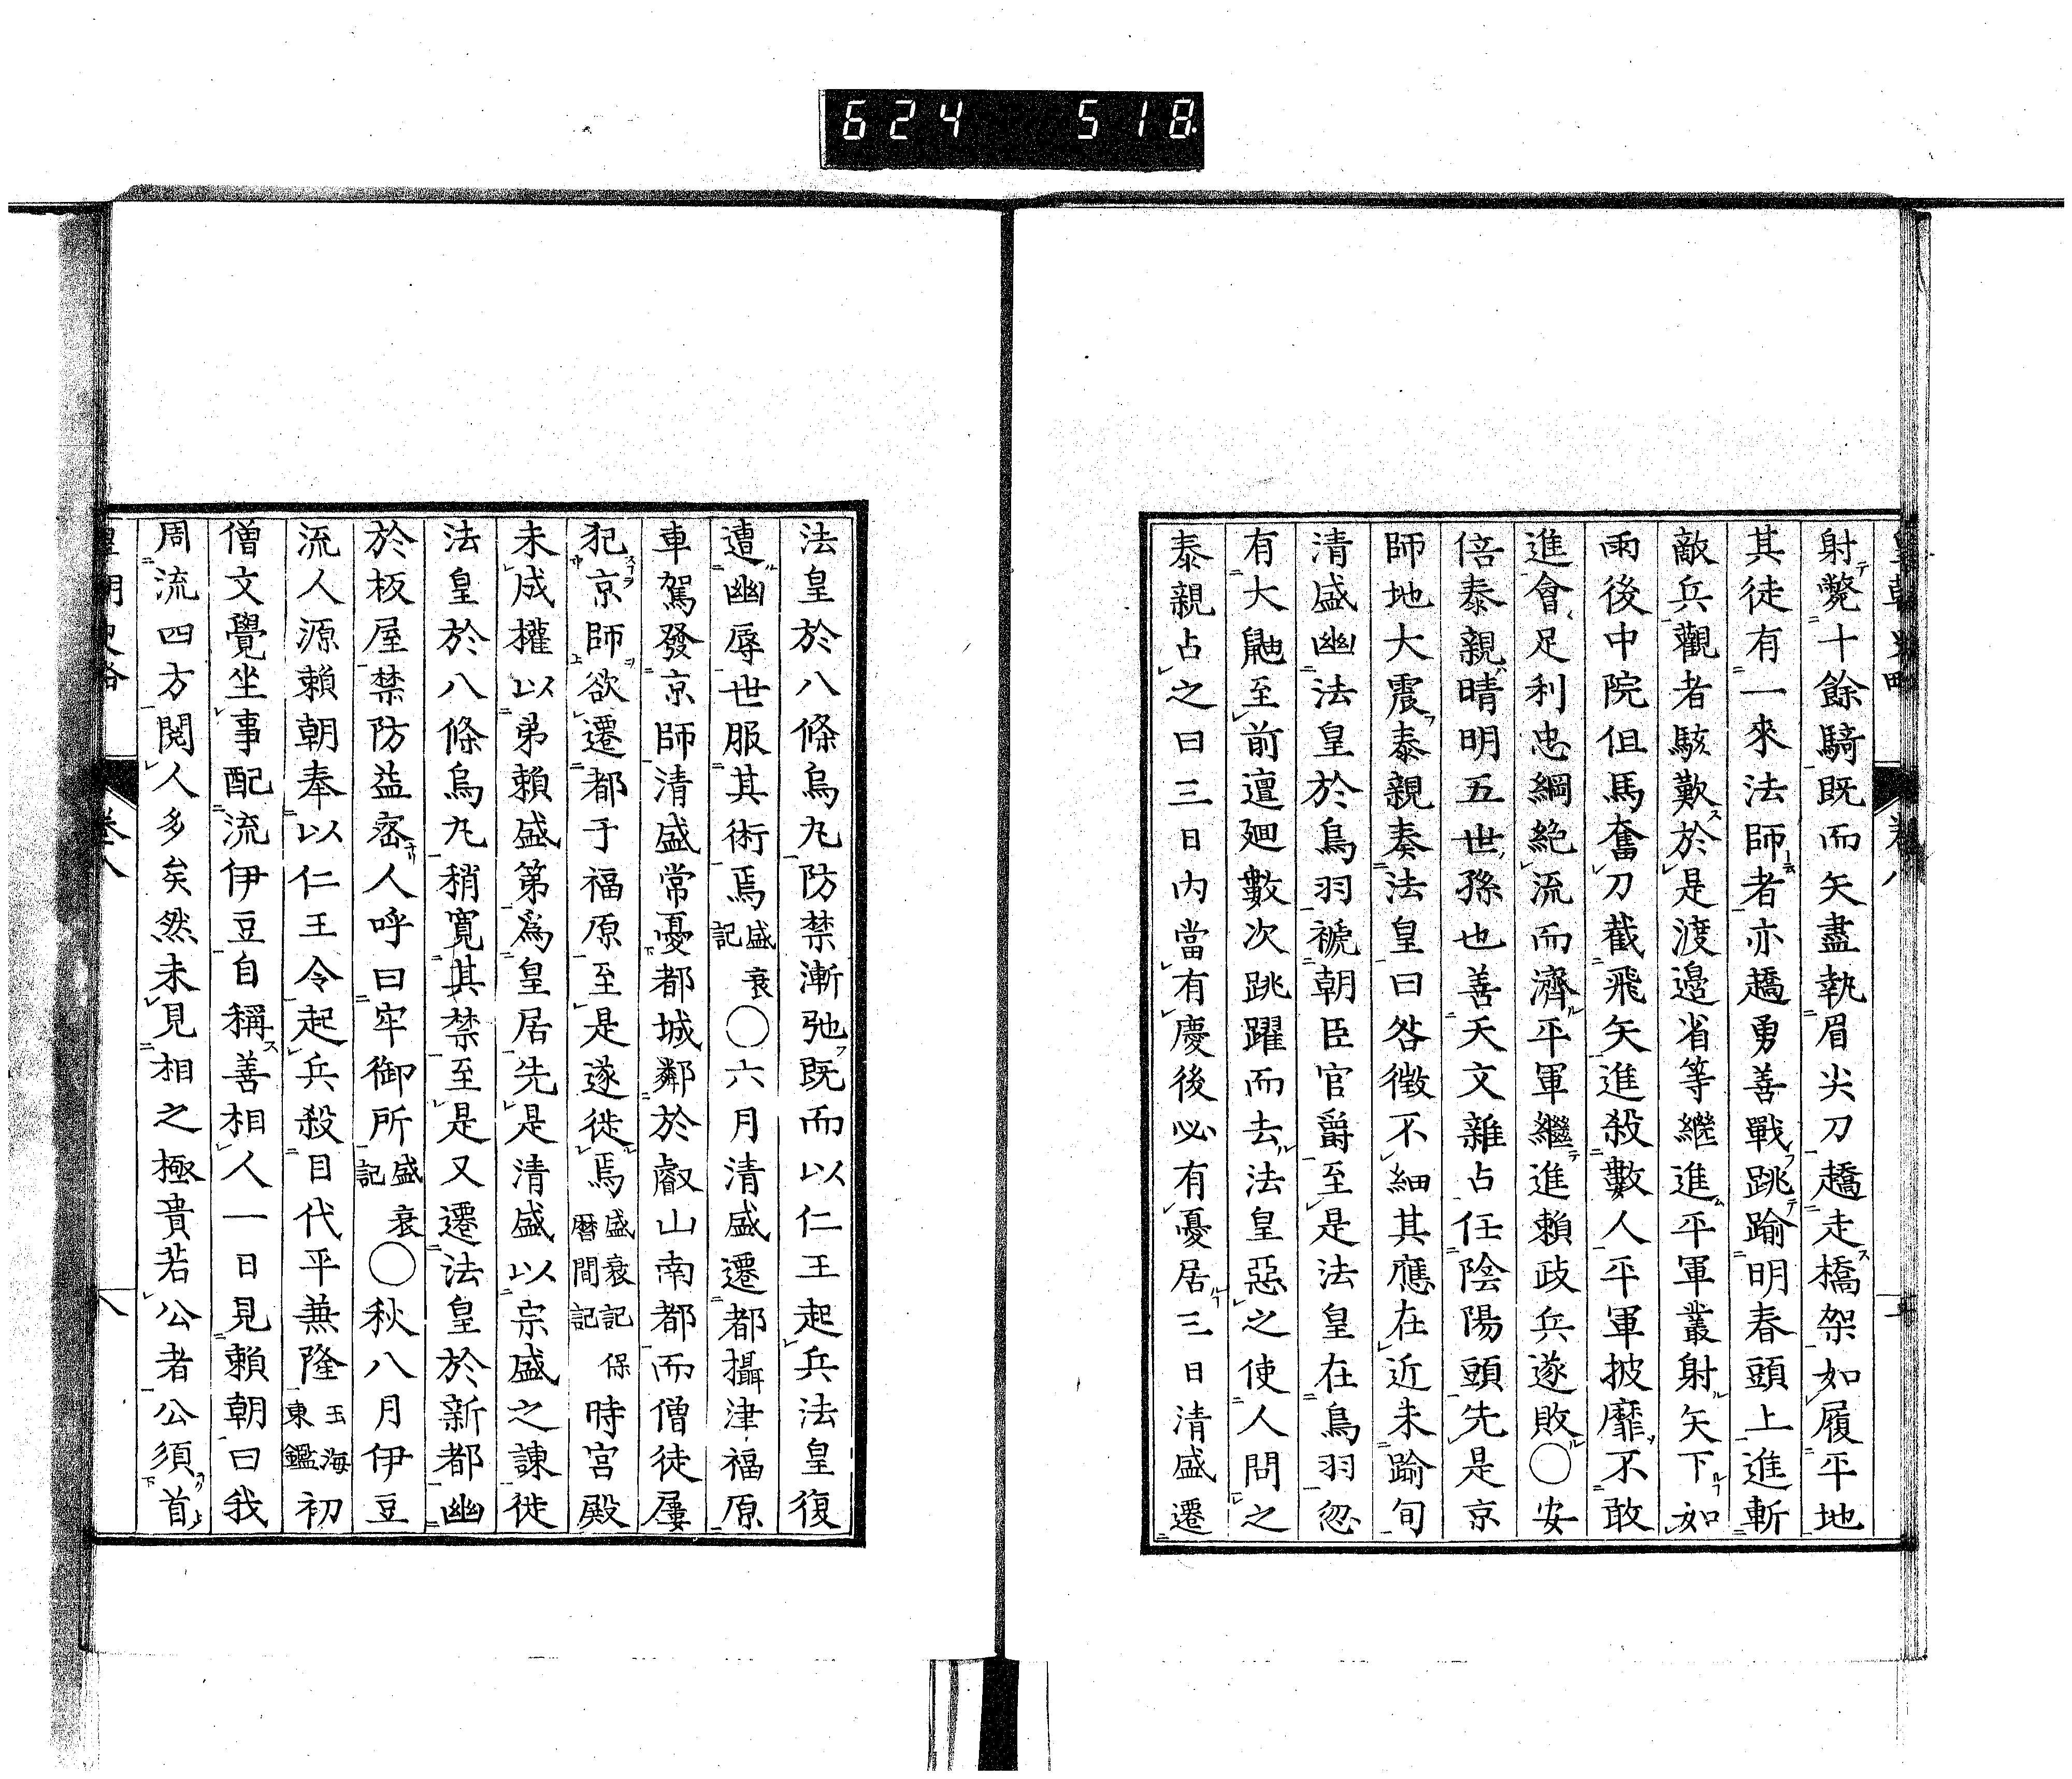 624 518
射斃十餘騎既而矢盡執眉尖刀趫走橋架如履平地
其徒有一來法師者亦趫勇善戰跳踰明春頭上進斬
敵兵觀者駭歎於是渡邊省等繼進平軍叢射矢下如
雨後中院但馬奮刀截飛矢進殺數人平軍披靡不敢
進會足利忠綱絶流而濟平軍繼進賴政兵遂敗○安
倍泰親晴明五世孫也善天文雜占任陰陽頭先是京
師地大震泰親奏法皇曰咎徵不細其應在近未踰旬
清盛幽法皇於鳥羽褫朝臣官爵至是法皇在鳥羽忽
有大鼬至前邅廻數次跳躍而去法皇惡之使人問之
泰親占之曰三日内當有慶後必有憂居三日清盛遷
法皇於八條烏丸防禁漸弛既而以仁王起兵法皇復
遭幽辱世服其術焉盛衰記○六月清盛遷都攝津福原
車駕發京師清盛常憂都城鄰於叡山南都而僧徒屢
犯京師欲遷都于福原至是遂徙焉盛衰記保暦間記時宮殿
未成權以弟賴盛第爲皇居先是清盛以宗盛之諫徙
法皇於八條烏丸稍寛其禁至是又遷法皇於新都幽
於板屋禁防益密人呼曰牢御所盛衰記○秋八月伊豆
流人源賴朝奉以仁王令起兵殺目代平兼隆玉海東鑑初
僧文覺坐事配流伊豆自稱善相人一日見賴朝曰我
周流四方閱人多矣然未見相之極貴若公者公須首
皇朝史略 卷八 八